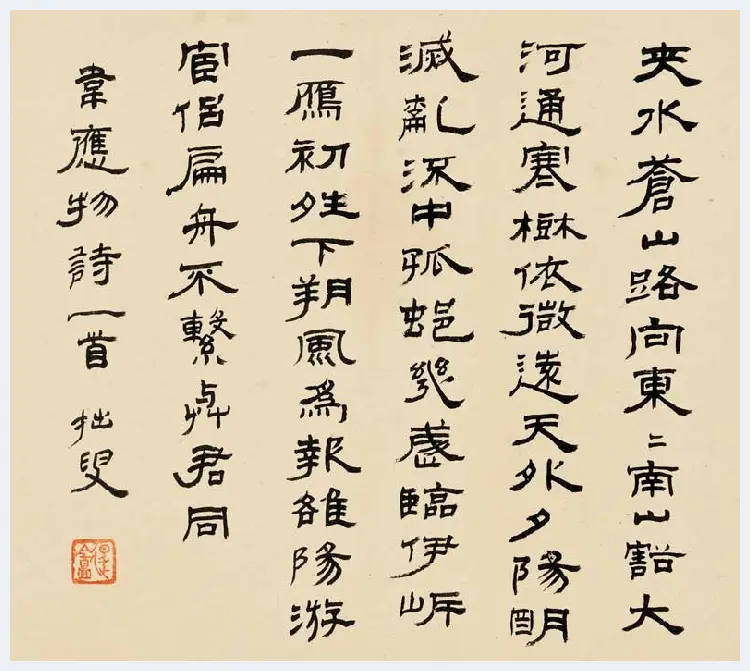 夾水蒼山路向東〻南山豁大
河通寒樹依微遠天外夕陽朙
滅亂流中孤邨幾歲臨伊岸
一鴈初夝下朔風爲報雒陽游
宦侶扁舟不繫與君同
韋應物詩一首 拙叟